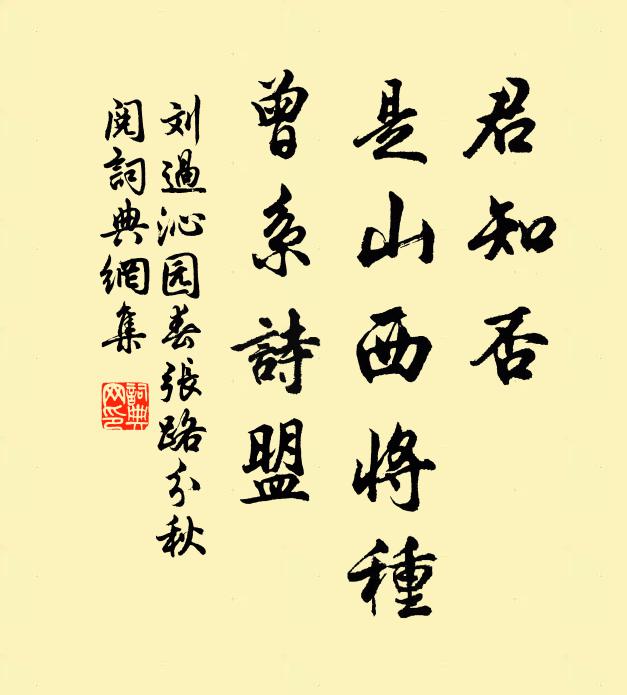 君知否
是山西将種
曾系詩盟
刘過沁园春張路分秋
閱詞典網集
詞典
网印